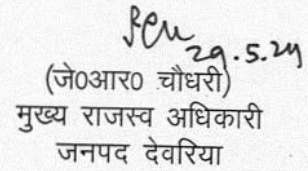 29.5.24
(जे०आर० चौधरी)
मुख्य राजस्व अधिकारी
जनपद देवरिया